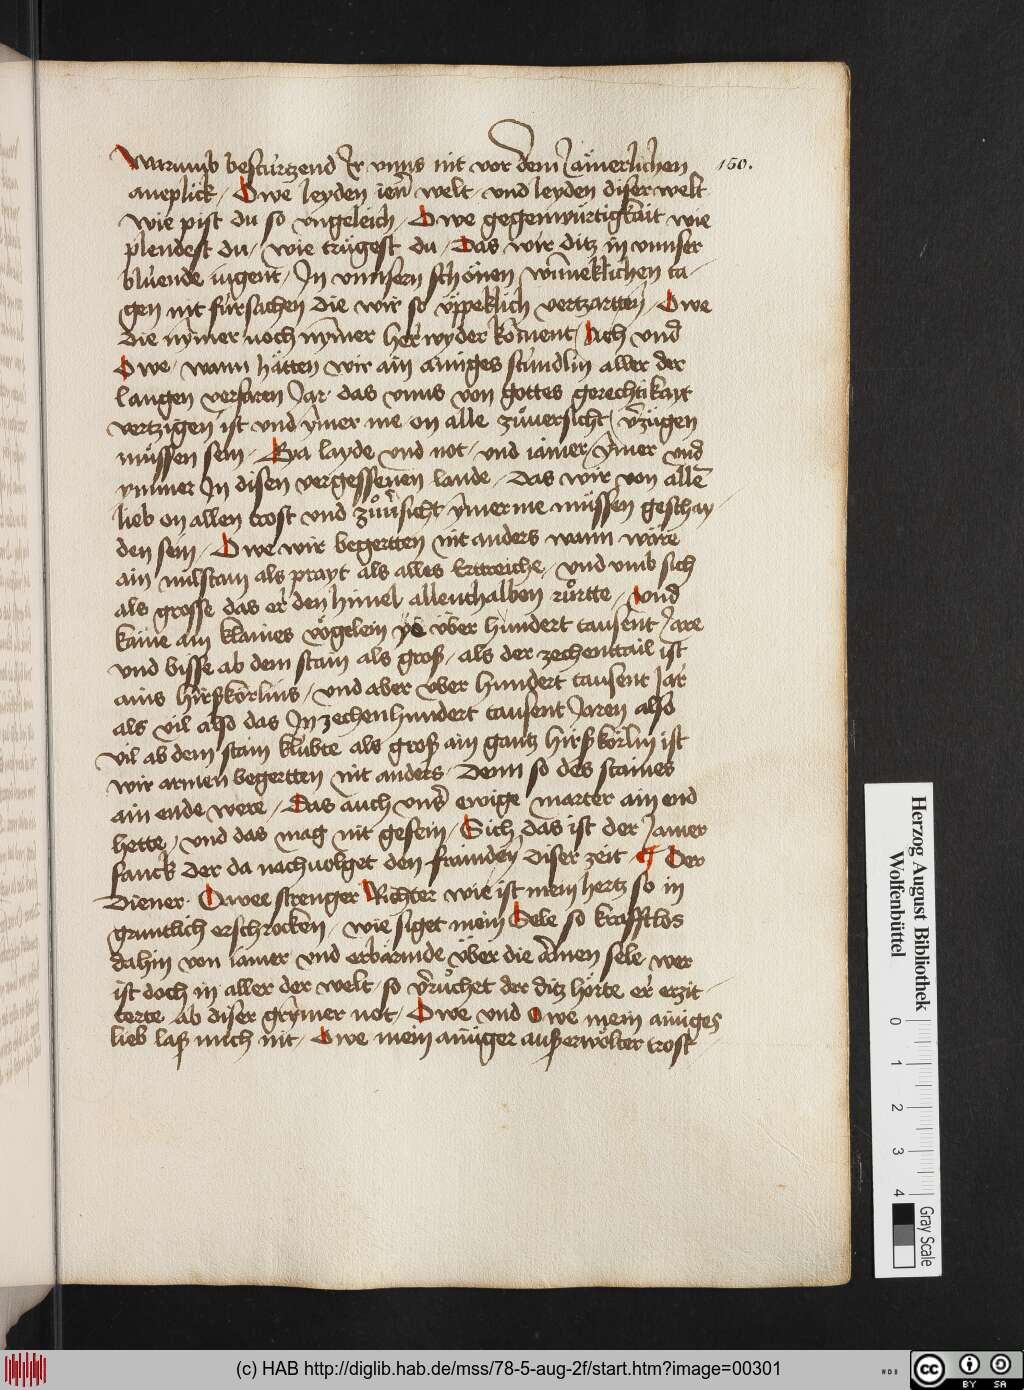 Warumb besturtzend Ir vnns nit vor dem Jämerlichen
aneplick / Owe leyden iener welt / vnd leyden diser welt
wie pist du so vngeleich / Owe gegenwürtigkait wie
plendest du / wie trügest du / Das wir ditz in vnnser
blüende iugent / In vnnsern schönen winneklichen ta-
gen nit fürsachen die wir so üppeklich vertzartten / Owe
die nymer noch nymer her wyder koment / Ach vnd
Owe / wann hätten wir ain ainiges stündlin aller der
langen verfaren Jar / das vnns von gottes gerechtikait
vertzigen ist vnd ymer me on alle zuuersicht vertzigen
müssen sein / Eya layde vnd not / vnd iamer / ymer vnd
ymmer In disen vergessenen lande / Das wir von allem
lieb on allen trost vnd zuuersicht ymer me müssen geschay
den sein / Owe wir begertten nit anders wann wäre
ain milstain als prayt als alles Ertreiche / vnd vmb sich
als grosse das er den himel allenthalben rürtte / vnd
käme ain klaines vögelein ye über hundert tausent Jare
vnd bisse ab dem stain als groß / als der zechenttail ist
ains hirßkörlins / vnd aber vber hundert tausent Jar
als vil also das In zechenhundert tausent Jaren also
vil ab dem stain klubte als groß ain gantz hirßkörlin ist
wir armen begertten nit anders / Denn so des staines
ain ende were / Das auch vnser ewige marter ain end
hette / vnd das mag nit gesein / Sich das ist der Jamer
sanck der da nachuolget den fründen diser zeit ¶ Der
Diener / Owee strenger Richter wie ist mein hertz so in
gruntlich erschrocken / wie siget mein Sele so krafftlos
dahin von iamer vnd erbärmde über die armen sele wer
ist doch in aller der welt / so verrüchet der ditz hörte er erzit-
terte ab diser grymer not / Owe vnd owe mein ainiges
lieb laß mich nit / Owe mein ainiger außerwölter trost
150.
Herzog August Bibliothek
Wolfenbüttel
0 1 2 3 4
Gray Scale
(c) HAB http://diglib.hab.de/mss/78-5-aug-2f/start.htm?image=00301
WDB
cc BY SA